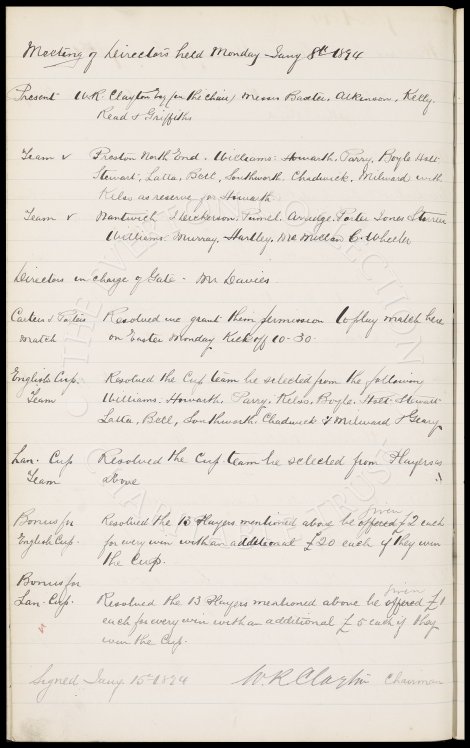 Meeting of Directors held Monday Jany 8th 1894
Present W.R. Clayton Esq (in the chair) Messrs Baxter, Atkinson, Kelly
Read & Griffiths
Team v Preston North End. Williams. Howarth, Parry, Boyle Holt
Stewart, Latta, Bell, Southworth, Chadwick, Milward with
Kelso as reserve for Howarth
Team v Nantwich Arridge. Porter Jones
Williams. Murray, Hartley, McMillan C. Wheeler
Directors in charge of Gate - Mr Davies
Carters & Porters Resolved we grant them permission to play match here
Match on Easter Monday Kick off 10-30
English Cup Resolved the Cup team be selected from the following
Team Williams. Howarth, Parry, Kelso, Boyle. Holt Stewart
Latta, Bell, Southworth, Chadwick & Milward & Geary
Lan. Cup Resolved the Cup team be selected from Players as
Team above
given
Bonus for Resolved the 13 Players mentioned above be offered £2 each
English Cup for every win with an additional £20 each if they win
the Cup.
Bonus for given
Lan. Cup. Resolved the 13 Players mentioned above be offered £1
each for every win with an additional £5 each if they
win the Cup.
Signed Jany. 15-1894 W.R. Clayton Chairman